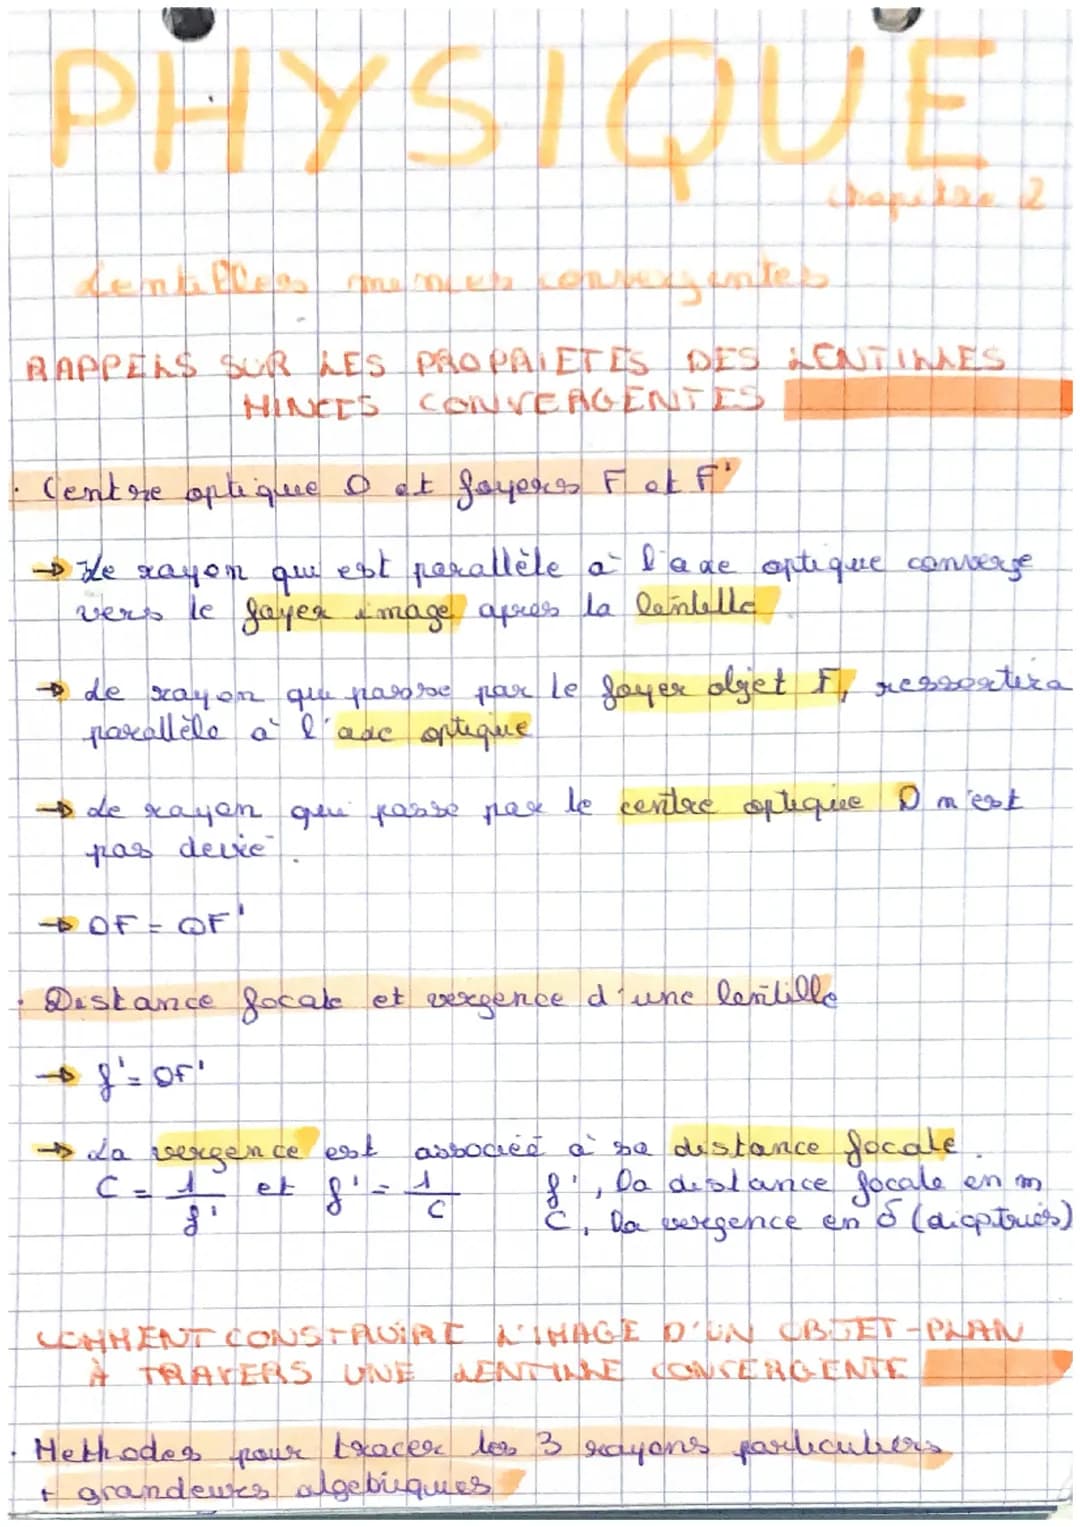 PHYSIQUE
Chapitre 2
Lentilles minces convergentes
RAPPELS SUR LES PROPRIETES DES LENTILLES
MINCES CONVERGENTES
• Centre optique O et foyers F et F'
→ Le rayon qui est parallèle à l'axe optique converge
vers le foyer image apres la lentille
→ Le rayon qui passe par le foyer objet F, ressortira
parallèle à l'axe optique
→ Le rayon qui passe par le centre optique O n'est
pas devié.
→ OF = OF'
• Distance focale et vergence d'une lentille
→ f' = OF'
→ La vergence est associée à sa distance focale.
C = 1/f' et f' = 1/C f', la distance focale en m
C, la vergence en δ (dioptries)
COMMENT CONSTRUIRE L'IMAGE D'UN OBJET-PLAN
À TRAVERS UNE LENTILLE CONVERGENTE
• Methodes pour tracer les 3 rayons particuliers
+ grandeurs algebriques